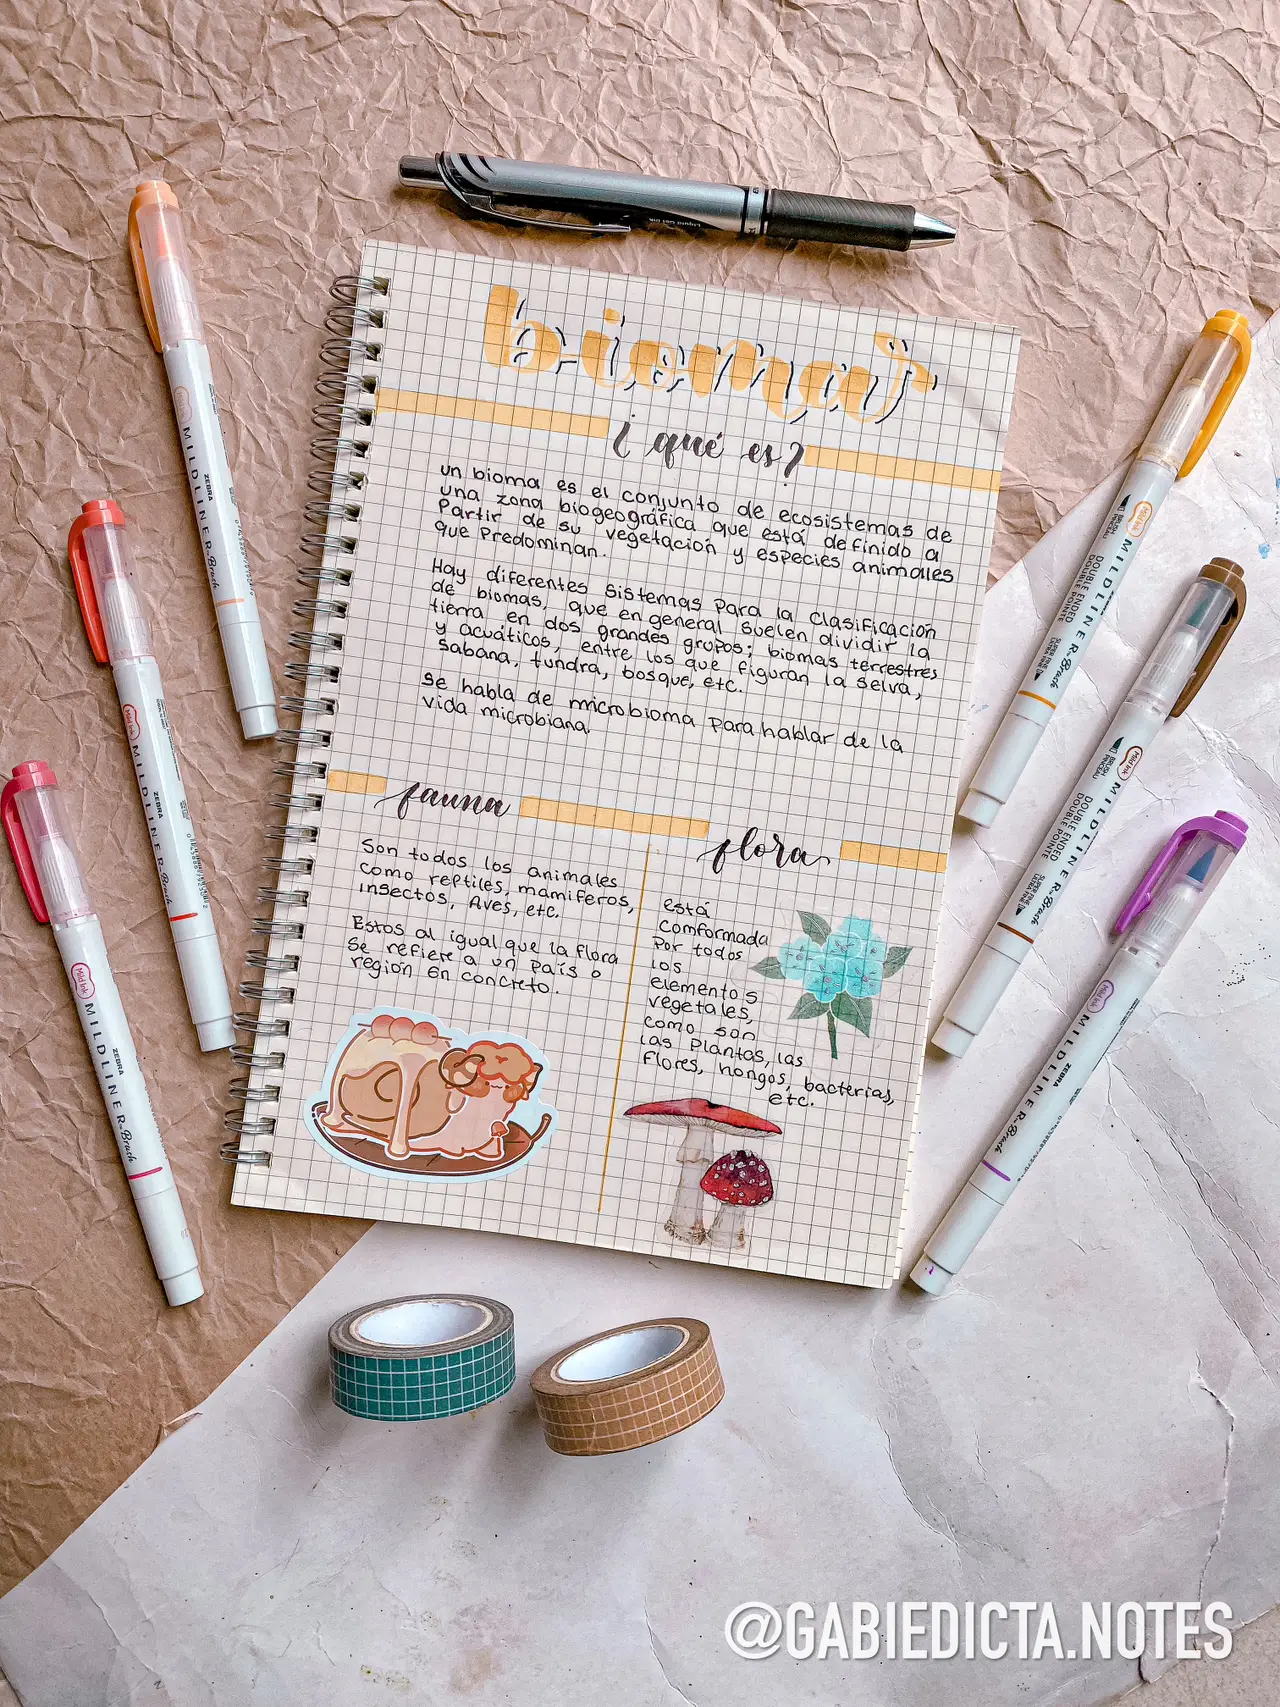 biomas
¿qué es?
un bioma es el conjunto de ecosistemas de
una zona biogeográfica que está definido a
Partir de su vegetación y especies animales
que Predominan.
Hay diferentes sistemas para la clasificación
de biomas, que en general suelen dividir la
tierra en dos grandes grupos; biomas terrestres
y acuáticos, entre los que figuran la selva,
sabana, tundra, bosque, etc.
Se habla de microbioma para hablar de la
vida microbiana.
fauna
Son todos los animales
como reptiles, mamiferos,
insectos, Aves, etc.
Estos al igual que la flora
se refiere a un país o
región en concreto.
flora
está
comformada
Por todos
los
elementos
vegetales,
como son
las Plantas, las
flores, hongos, bacterias,
etc.
Liquid Gel Ink
ZEBRA
MILDLINER Brush
Mild Ink
ZEBRA
MILDLINER Brush
Mild Ink
ZEBRA
MILDLINER Brush
Mild Ink
BRUSH
PINCEAU
MILDLINER Brush
DOUBLE ENDED
DOUBLE POINTE
SUPER FINE
ULTRA FINE
Mild Ink
BRUSH
PINCEAU
MILDLINER Brush
DOUBLE ENDED
DOUBLE POINTE
SUPER FINE
ULTRA FINE
Mild Ink
ZEBRA
MILDLINER Brush
@GABIEDICTA.NOTES